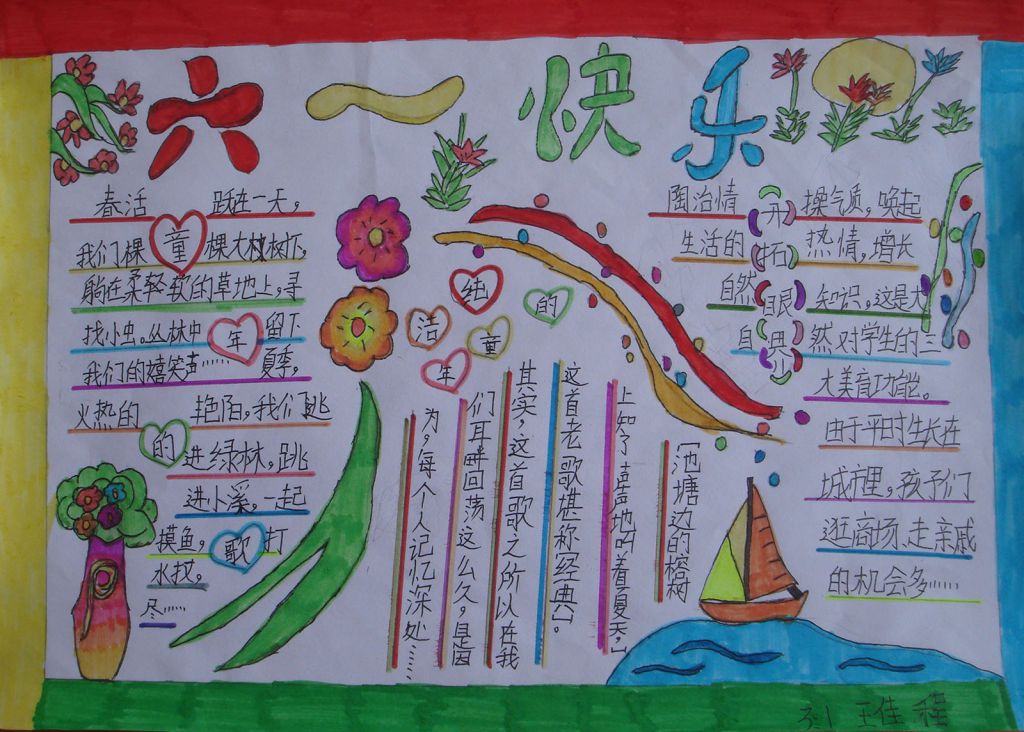 六一快乐
春活 跃在一天，
我们棵童棵大树下，
躺在柔轻软的草地上，寻
找小虫。丛林中年留下
我们的嬉笑声……夏季，
火热的 艳阳，我们跳
的进绿林，跳
进小溪，一起
摸鱼，歌打
水拉，
尽……
纯
活 童 的
年
〔池塘边的榕树
上知了声声地叫着夏天，」
这首老歌堪称经典〕。
其实，这首歌之所以在我
们耳畔回荡这么久，是因
为，每个人记忆深处……
开拓眼界
陶冶情 操气质，唤起
生活的 热情，增长
自然 知识，这是大
自 然对学生的三
大美育功能。
由于平时生长在
城市里，孩子们
逛商场、走亲戚
的机会多……
王佳程